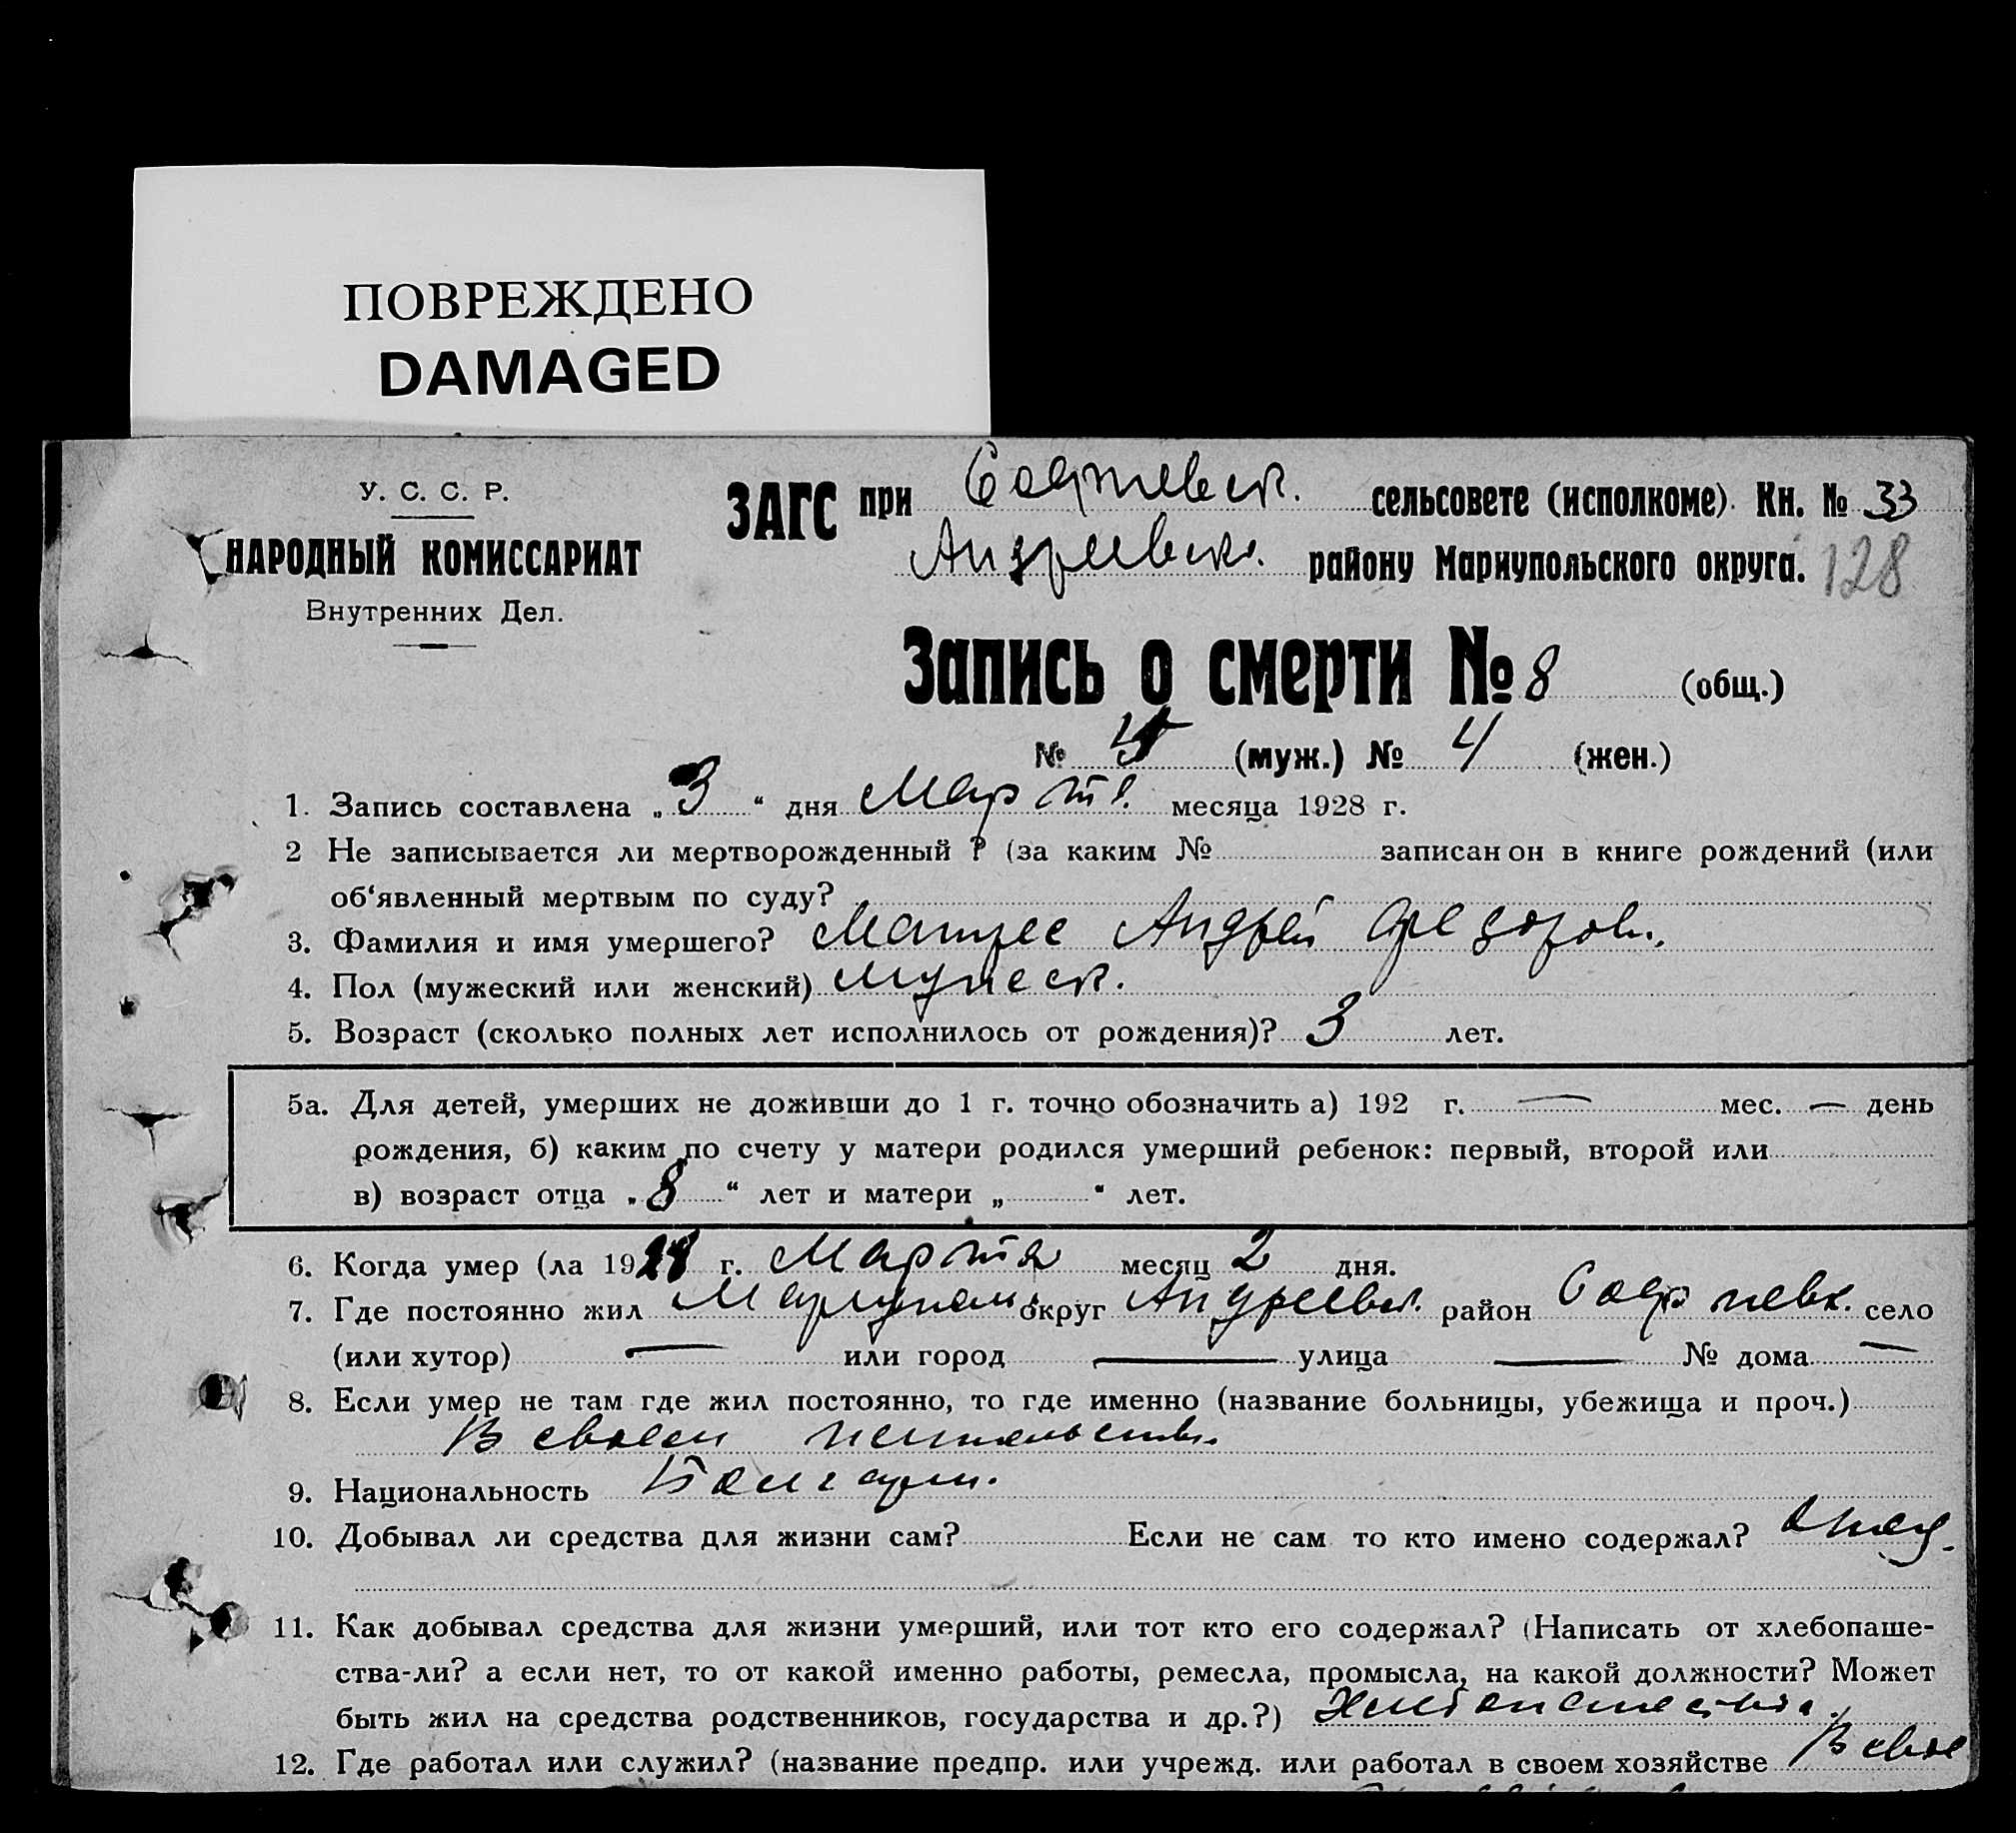 ПОВРЕЖДЕНО
DAMAGED
У. С. С. Р.
НАРОДНЫЙ КОМИССАРИАТ
Внутренних Дел.
ЗАГС при сельсовете (исполкоме). Кн. № 33
Андреевск. району Мариупольского округа. 128
Запись о смерти № 8 (общ.)
№ (муж.) № 4 (жен.)
1. Запись составлена „3“ дня Март. месяца 1928 г.
2 Не записывается ли мертворожденный ? (за каким № записан он в книге рождений (или
об‘явленный мертвым по суду?
3. Фамилия и имя умершего? Андрей
4. Пол (мужеский или женский) мужеск.
5. Возраст (сколько полных лет исполнилось от рождения)? 3 лет.
5а. Для детей, умерших не доживши до 1 г. точно обозначить а) 192 г. — мес. — день
рождения, б) каким по счету у матери родился умерший ребенок: первый, второй или
в) возраст отца „8“ лет и матери „ “ лет.
6. Когда умер (ла 1928 г. Марта месяц 2 дня.
7. Где постоянно жил Мариуполь округ Андреевск. район село
(или хутор) — или город — улица — № дома —
8. Если умер не там где жил постоянно, то где именно (название больницы, убежища и проч.)
В своем
9. Национальность Болгарин.
10. Добывал ли средства для жизни сам? Если не сам то кто имено содержал? отец.
11. Как добывал средства для жизни умерший, или тот кто его содержал? (Написать от хлебопаше-
ства-ли? а если нет, то от какой именно работы, ремесла, промысла, на какой должности? Может
быть жил на средства родственников, государства и др.?) Хлебопашества.
12. Где работал или служил? (название предпр. или учрежд. или работал в своем хозяйстве В свое